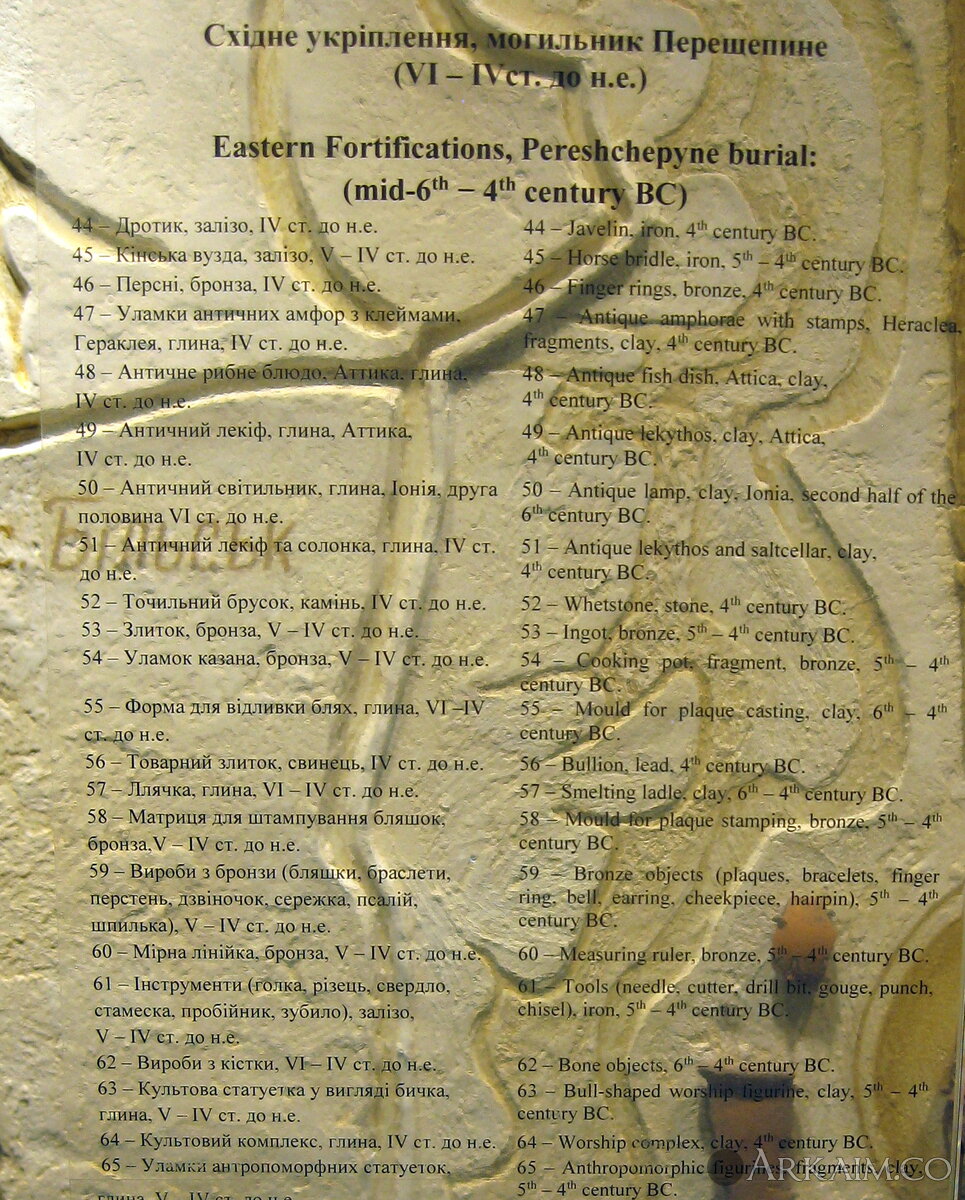 Східне укріплення, могильник Перещепине
(VI – IVст. до н.е.)
Eastern Fortifications, Pereshchepyne burial:
(mid-6th – 4th century BC)
44 – Дротик, залізо, IV ст. до н.е.
45 – Кінська вузда, залізо, V – IV ст. до н.е.
46 – Персні, бронза, IV ст. до н.е.
47 – Уламки античних амфор з клеймами,
Гераклея, глина, IV ст. до н.е.
48 – Античне рибне блюдо, Аттика, глина,
IV ст. до н.е.
49 – Античний лекіф, глина, Аттика,
IV ст. до н.е.
50 – Античний світильник, глина, Іонія, друга
половина VI ст. до н.е.
51 – Античний лекіф та солонка, глина, IV ст.
до н.е.
52 – Точильний брусок, камінь, IV ст. до н.е.
53 – Злиток, бронза, V – IV ст. до н.е.
54 – Уламок казана, бронза, V – IV ст. до н.е.
55 – Форма для відливки блях, глина, VI –IV
ст. до н.е.
56 – Товарний злиток, свинець, IV ст. до н.е.
57 – Ллячка, глина, VI – IV ст. до н.е.
58 – Матриця для штампування бляшок,
бронза,V – IV ст. до н.е.
59 – Вироби з бронзи (бляшки, браслети,
перстень, дзвіночок, сережка, псалій,
шпилька), V – IV ст. до н.е.
60 – Мірна лінійка, бронза, V – IV ст. до н.е.
61 – Інструменти (голка, різець, свердло,
стамеска, пробійник, зубило), залізо,
V – IV ст. до н.е.
62 – Вироби з кістки, VI – IV ст. до н.е.
63 – Культова статуетка у вигляді бичка,
глина, V – IV ст. до н.е.
64 – Культовий комплекс, глина, IV ст. до н.е.
65 – Уламки антропоморфних статуеток,
глина, V – IV ст. до н.е.
44 – Javelin, iron, 4th century BC.
45 – Horse bridle, iron, 5th – 4th century BC.
46 – Finger rings, bronze, 4th century BC.
47 – Antique amphorae with stamps, Heraclea,
fragments, clay, 4th century BC.
48 – Antique fish dish, Attica, clay,
4th century BC.
49 – Antique lekythos, clay, Attica,
4th century BC.
50 – Antique lamp, clay, Ionia, second half of the
6th century BC.
51 – Antique lekythos and saltcellar, clay,
4th century BC.
52 – Whetstone, stone, 4th century BC.
53 – Ingot, bronze, 5th – 4th century BC.
54 – Cooking pot, fragment, bronze, 5th – 4th
century BC.
55 – Mould for plaque casting, clay, 6th – 4th
century BC.
56 – Bullion, lead, 4th century BC.
57 – Smelting ladle, clay, 6th – 4th century BC.
58 – Mould for plaque stamping, bronze, 5th – 4th
century BC.
59 – Bronze objects (plaques, bracelets, finger
ring, bell, earring, cheekpiece, hairpin), 5th – 4th
century BC.
60 – Measuring ruler, bronze, 5th – 4th century BC.
61 – Tools (needle, cutter, drill bit, gouge, punch,
chisel), iron, 5th – 4th century BC.
62 – Bone objects, 6th – 4th century BC.
63 – Bull-shaped worship figurine, clay, 5th – 4th
century BC.
64 – Worship complex, clay, 4th century BC.
65 – Anthropomorphic figurines, fragments, clay,
5th – 4th century BC.
с. Більськ
ARKAIM.CO